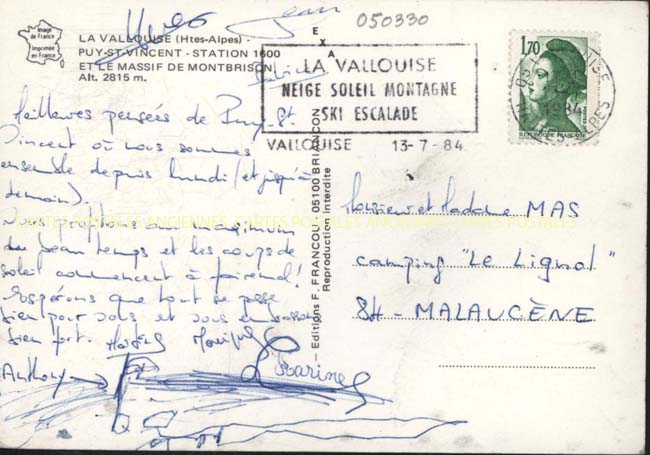 Image
de France
Imprimée
en France
LA VALLOUISE (Htes-Alpes) -
PUY-ST-VINCENT - STATION 1600
ET LE MASSIF DE MONTBRISON
Alt. 2815 m.
Yves
Jean
050330
EXA
LA VALLOUISE
NEIGE SOLEIL MONTAGNE
SKI ESCALADE
VALLOUISE 13-7-84
1,70
REPUBLIQUE FRANÇAISE
Meilleures pensées de Puy St
Vincent où nous sommes
ensemble depuis lundi (et jusqu'à
demain).
Nous profitons au maximum
du beau temps et les coups de
soleil commencent à faire mal!
Espérons que tout se passe
bien pour vous et vous embrassons
bien fort.
Monique
Anthony
Karine
Editions F. FRANCOU - 05100 BRIANÇON
Reproduction interdite
Monsieur et Madame MAS
camping "Le Lignol"
84 - MALAUCÈNE
CARTES POSTALES ANCIENNES CARTES POSTALES ANCIENNES CARTES POSTALES